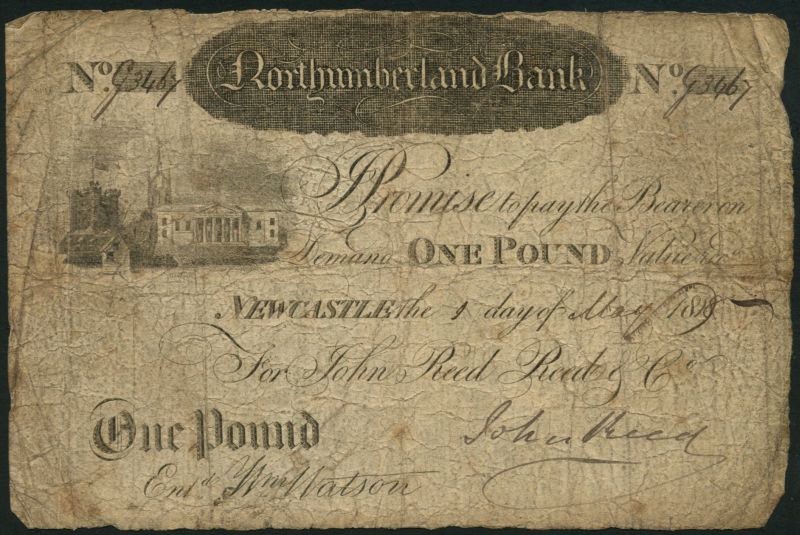 Northumberland Bank
No. G3467 No. G3467
I Promise to pay the Bearer on
Demand ONE POUND Value recd
NEWCASTLE the 1 day of May 1818
For John Reed Reed & Co
One Pound John Reed
Entd Wm Watson